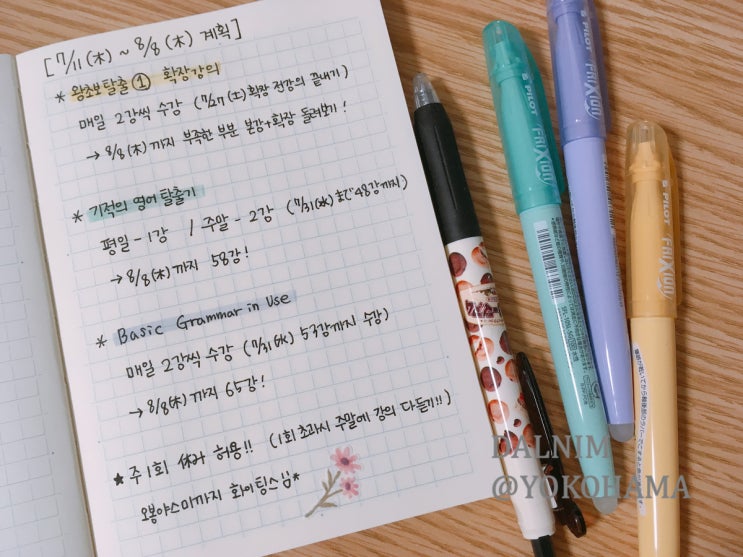 [ 7/11(木) ~ 8/8(木) 계획 ]
* 왕초보탈출① 확장강의
매일 2강씩 수강 (7/27(土) 확장 전강의 끝내기)
→ 8/8(木)까지 부족한 부분 본강+확장 돌려보기!
* 기적의 영어탈출기
평일 - 1강 / 주말 - 2강 (7/31(水)まで 48강까지)
→ 8/8(木)까지 58강!
* Basic Grammar in Use
매일 2강씩 수강 (7/31(水) 53강까지 수강)
→ 8/8(木)까지 65강!
★ 주 1회 休み 허용!! (1회 초과시 주말에 강의 다듣기!!)
오봉야스미까지 화이팅스님*
PILOT FRIXION
PILOT FRIXION
PILOT FRIXION
DALNIM
@YOKOHAMA